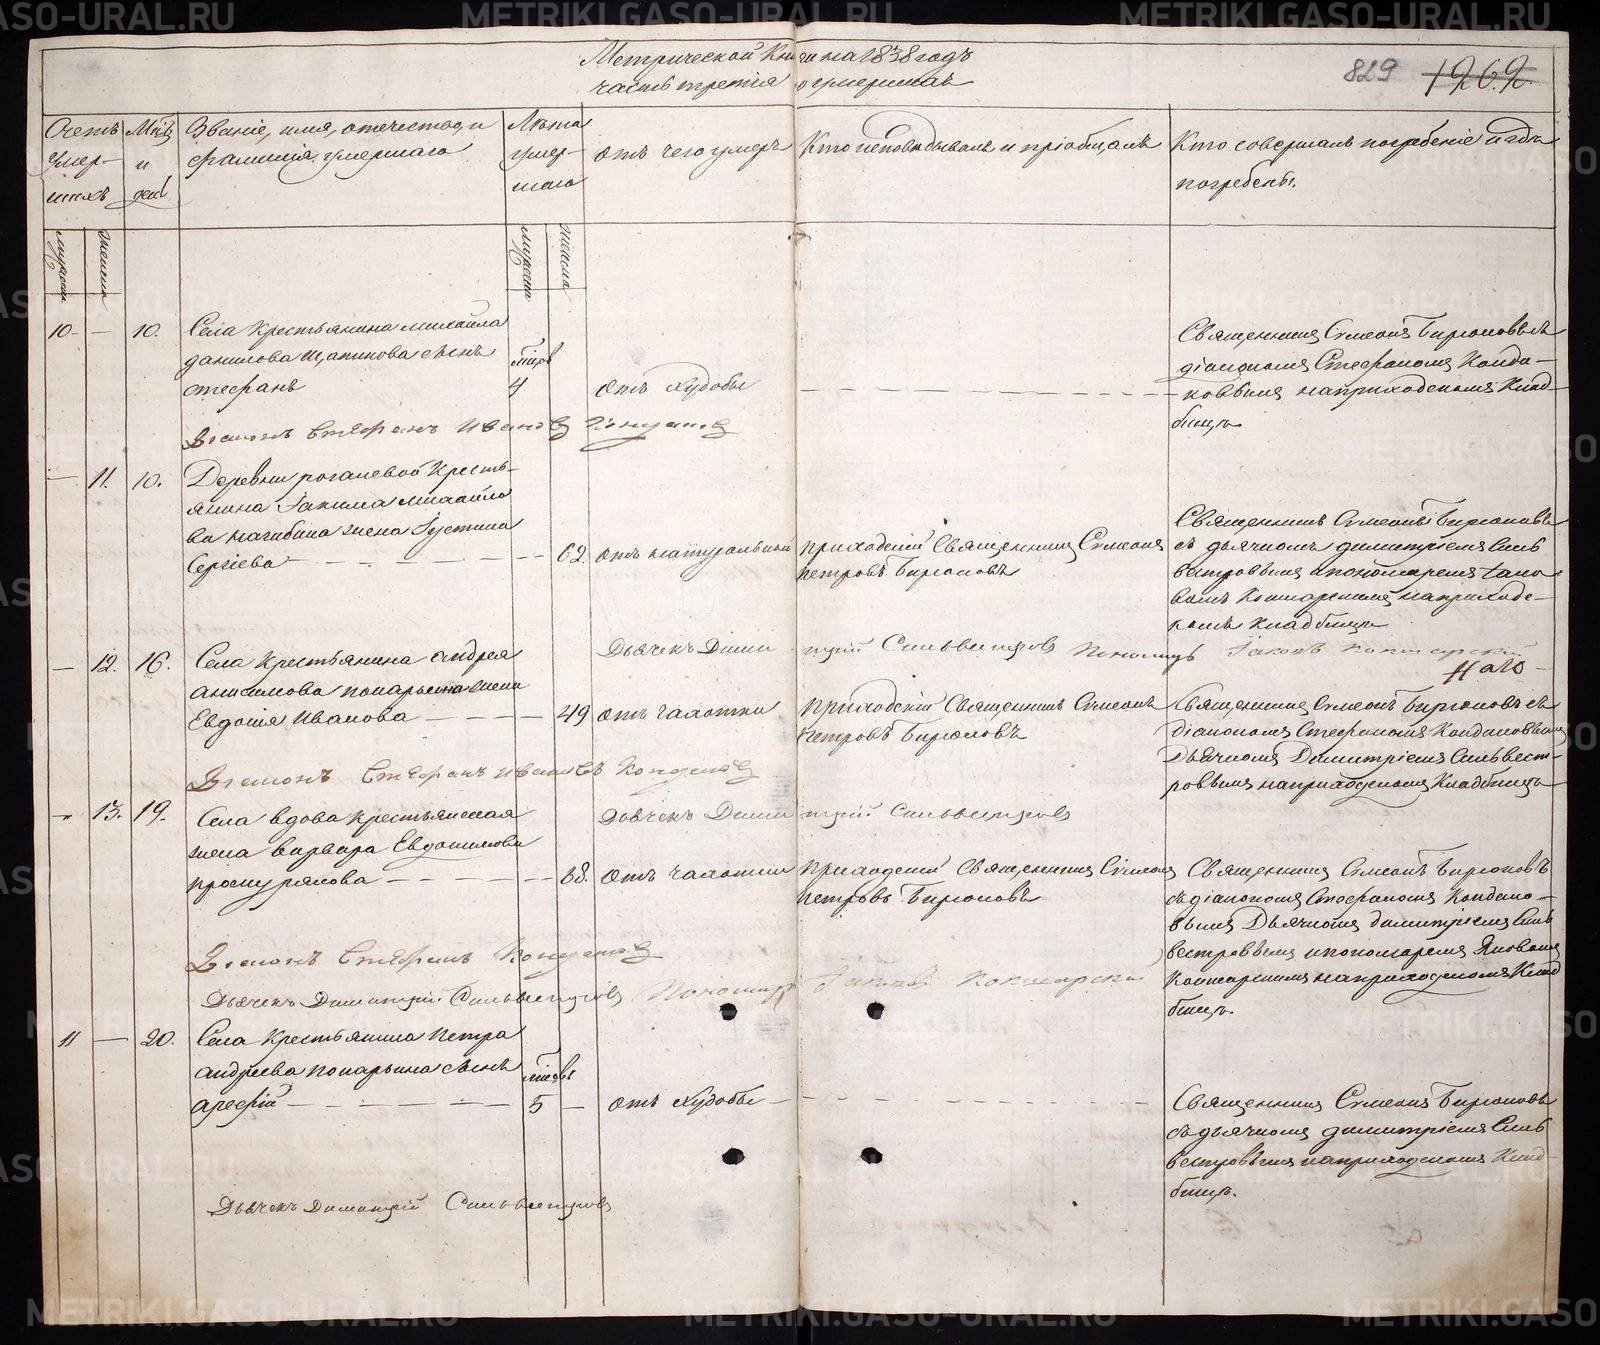 METRIKI.GASO-URAL.RU
Метрической Книги на 1838 годъ
часть третія о умершихъ
829 1262.
Счетъ умер-шихъ
Мцъ и дени
Званіе, имя, отечество, и фамилія умершаго
Лѣта умер-шаго
отъ чего умеръ
Кто исповѣдывалъ и пріобщалъ
Кто совершалъ погребеніе и гдѣ погребены.
мужска
женска
мужска
женска
10 - — 10.
Села Крестьянина Михайла
данилова Щапинова сынъ
стефанъ
4
отъ худобы
Священникъ Симеонъ Бирюковъ съ
діакономъ Стефаномъ Конда-
ковымъ на приходскомъ Клад-
бищѣ.
Діаконъ Стефанъ Ивановъ Кондаковъ
— 11. 10.
Деревни рогалевой Кресть-
янина Іакима Михайло
ва нагибина жена Іустина
Сергіева
62.
отъ натуральной
приходскій Священникъ Симеонъ
петровъ Бирюковъ
Священникъ Симеонъ Бирюковъ
съ дьячкомъ димитріемъ Силь
вестровымъ и пономаремъ Іако
вомъ Кокшарскимъ на приход-
скомъ Кладбищѣ
Дьячекъ Димитрій Сильвестровъ Пономарь Іаковъ Кокшарскій
— 12. 16.
Села Крестьянина Андрея
анисимова понарьина жена
Евдокія Иванова
49
отъ чахотки
приходскій Священникъ Симеонъ
петровъ Бирюковъ
Священникъ Симеонъ Бирюковъ съ
діакономъ Стефаномъ Кондаковымъ
Дьячкомъ Димитріемъ Сильвест-
ровымъ на приходскомъ Кладбищѣ
Діаконъ Стефанъ Ивановъ Кондаковъ
Дьячекъ Димитрій Сильвестровъ
— 13. 19.
Села вдова крестьянская
жена варвара Евдокимова
проскурякова
68.
отъ чахотки
приходскій Священникъ Симеонъ
петровъ Бирюковъ
Священникъ Симеонъ Бирюковъ
съ діакономъ Стефаномъ Кондако-
вымъ Дьячкомъ димитріемъ Силь
вестровымъ и пономаремъ Яковомъ
Кокшарскимъ на приходскомъ Клад
бищѣ.
Діаконъ Стефанъ Кондаковъ
Дьячекъ Димитрій Сильвестровъ Пономарь Іаковъ Кокшарскій
11 — 20.
Села Крестьянина Петра
андреева понарьина сынъ
арефій
5 —
отъ худобы
Священникъ Симеонъ Бирюковъ
съ дьячкомъ димитріемъ Силь
вестровымъ на приходскомъ Клад-
бищѣ.
Дьячекъ Димитрій Сильвестровъ